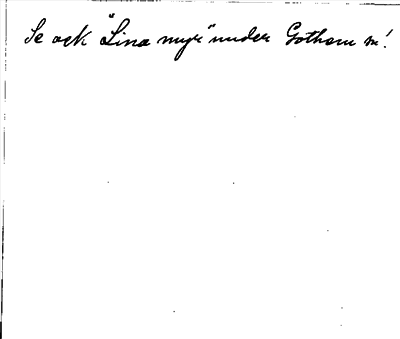 Se ock "Lina myr" under Gotham sn!